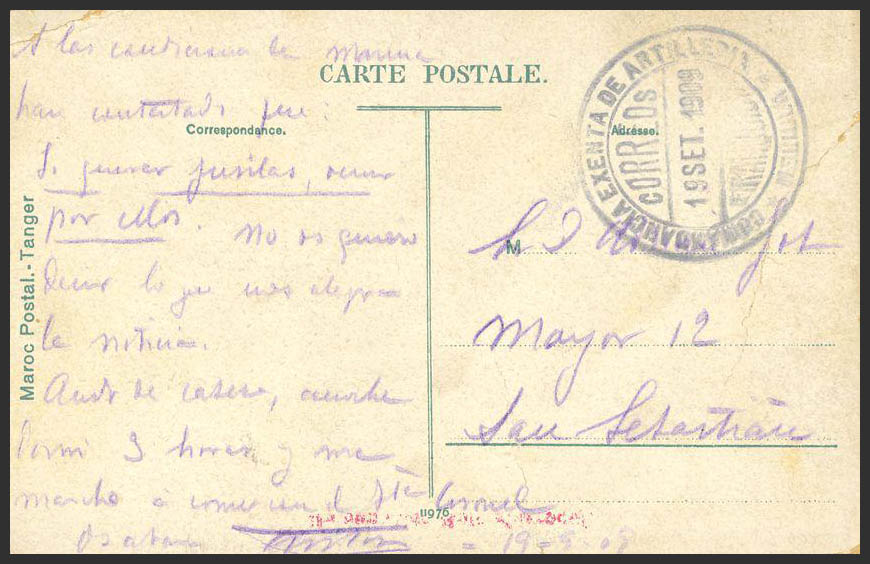 A las condiciones de
CARTE POSTALE.
han contestado que:
Correspondance.
Adresse.
Si quieren fusilas, venir
por ellos. No os quiero
decir lo que nos alegra
la noticia.
Ando de cabeza, anoche
dormí 3 horas y me
marcho a comer con el Tte Coronel
19-9-09
M
Mayor 12
San Sebastián
Maroc Postal.-Tanger
11976
COMANDANCIA EXENTA DE ARTILLERIA * MELILLA *
CORREOS
19 SET. 1909